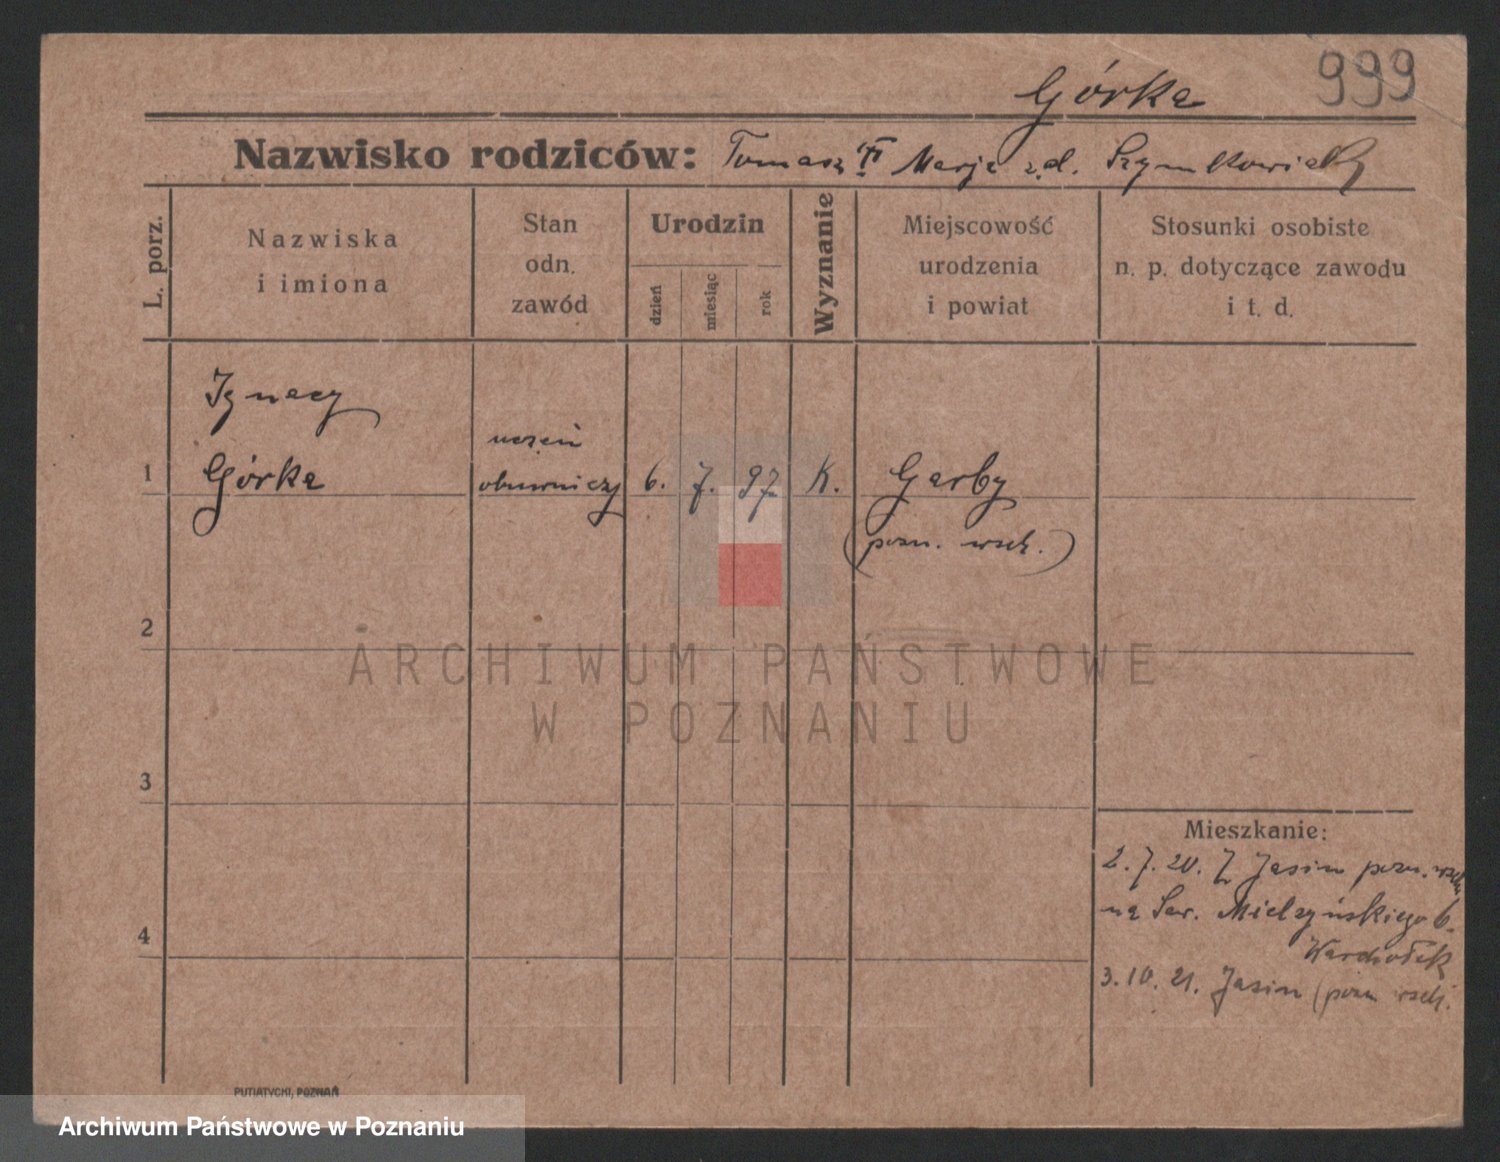 999
Górka
Nazwisko rodziców: Tomasz Marja z.d. Szymkowiak
L. porz.
Nazwiska
i imiona
Stan
odn.
zawód
Urodzin
dzień
miesiąc
rok
Wyznanie
Miejscowość
urodzenia
i powiat
Stosunki osobiste
n. p. dotyczące zawodu
i t. d.
Ignacy
uczeń
1 Górka obuwniczy 6. 7. 97 K. Garby
(pozn. wsch.)
2
ARCHIWUM PAŃSTWOWE
W POZNANIU
3
Mieszkanie:
2. 7. 20. Z Jasin pozn. wsch.
na Sew. Mielżyńskiego 6.
4
3. 10. 21. Jasin (pozn wsch.
PUTIATYCKI, POZNAŃ
Archiwum Państwowe w Poznaniu